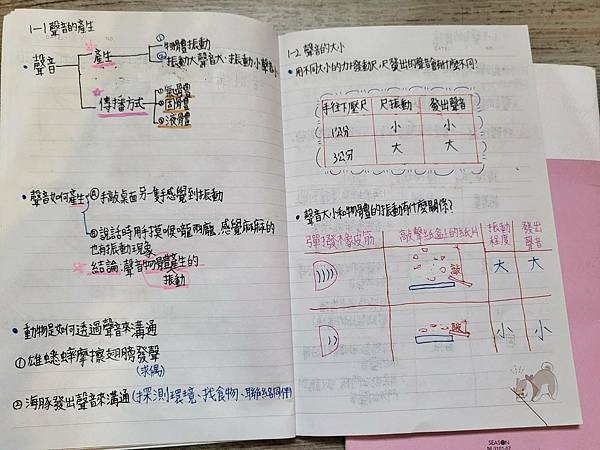 1-1 聲音的產生
聲音
產生
①物體振動
②振動大聲音大、振動小聲音小
傳播方式
①氣體
②固體
③液體
聲音如何產生
Ⓐ手敲桌面另一隻手感覺到振動
Ⓑ說話時用手摸喉嚨兩側,感覺麻麻的
也有振動現象
結論:聲音物體產生的
振動
動物是如何透過聲音來溝通
①雄蟋蟀摩擦翅膀發聲
(求偶)
②海豚發出聲音來溝通(探測環境、找食物、聯絡同伴)
1-2 聲音的大小
用不同大小的力扌發動尺,尺發出的聲音有什麼不同?
手往下壓尺 尺振動 發出聲音
1公分 小 小
3公分 大 大
聲音大小和物體的振動有什麼關係?
彈撥橡皮筋 敲擊紙盒上的紙片 振動程度 發出聲音
敲 大 大
敲 小 小
SEASON